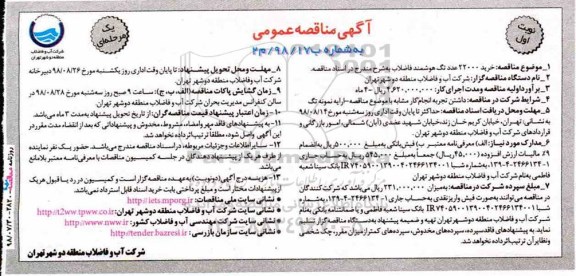 آگهی مناقصه عمومی
به شماره ب۹۸/۱۷/م۲
نوبت
اول
یک
مرحله‌ای
شرکت آب و فاضلاب
منطقه دو شهر تهران
۱_ موضوع مناقصه: خرید ۲۲۰۰۰ عدد تگ هوشمند فاضلاب به شرح مندرج در اسناد مناقصه.
۲_ نام دستگاه مناقصه گزار: شرکت آب و فاضلاب منطقه دو شهر تهران
۳_ برآورد اولیه مناقصه ومدت اجرای کار: ۴,۶۲۰,۰۰۰,۰۰۰ ریال -۳ ماه
۴_ شرایط شرکت در مناقصه: داشتن تجربه انجام کار مشابه با موضوع مناقصه -ارایه نمونه تگ
۵_ مهلت ومحل دریافت اسناد مناقصه: حداکثر تا پایان وقت اداری روز سه شنبه مورخ ۹۸/۰۸/۱۴
به نشانی: تهران، خیابان کریم خان زند، خیابان شهید عضدی (آبان) شمالی، امور بازرگانی و
قراردادهای شرکت آب و فاضلاب منطقه دو شهر تهران.
۶_ مدارک مورد نیاز: الف) معرفی‌نامه معتبر ب) فیش بانکی به مبلغ ۵۰۰,۰۰۰ ریال به انضمام
۹٪ مالیات ارزش افزوده (۴۵,۰۰۰ ریال) جمعاً به مبلغ ۵۴۵,۰۰۰ ریال
فاطمی بنام شرکت آب و فاضلاب منطقه دو شهر تهران
۷_ مبلغ سپرده شرکت در مناقصه: به میزان ۲۳۱,۰۰۰,۰۰۰ ریال می‌باشد که شرکت کنندگان
در مناقصه می‌توانند به صورت فیش واریز نقدی به حساب جاری
شرکت آب و فاضلاب منطقه دو شهر تهران تهیه و ضمیمه پیشنهاد به دستگاه مناقصه گزار تسلیم
نماید. به پیشنهادهای فاقد سپرده، سپرده‌های مخدوش، سپرده‌های کمتر از میزان مقرر، چک شخصی
و نظایر آن ترتیب اثر داده نخواهد شد.
۸_ مهلت ومحل تحویل پیشنهاد: تا پایان وقت اداری روز یکشنبه مورخ ۹۸/۰۸/۲۶ دبیرخانه
شرکت آب و فاضلاب منطقه دو شهر تهران.
۹_ زمان گشایش پاکات مناقصه (الف، ب، ج): ساعت ۹ صبح روز سه شنبه مورخ ۹۸/۰۸/۲۸ در
سالن کنفرانس مدیریت بحران شرکت آب و فاضلاب منطقه دو شهر تهران.
۱۰_ زمان اعتبار پیشنهاد قیمت مناقصه گران: از تاریخ تحویل پیشنهاد به مدت ۳ ماه می‌باشد.
۱۱_ به پیشنهادهای فاقد مهر وامضاء، مشروط، مخدوش و پیشنهاداتی که بعد از انقضاء مدت مقرر در
این آگهی واصل شود، مطلقاً ترتیب اثر داده نخواهد شد.
۱۲_ سایر اطلاعات وجزئیات مربوطه، در اسناد مناقصه مندرج می‌باشد. حضور یک نفر نماینده
از طرف هر یک از پیشنهاددهندگان در جلسه کمیسیون مناقصات با معرفی‌نامه معتبر بلامانع
است.
۱۳_ هزینه درج آگهی (دو نوبت) به عهده مناقصه گزار است و کمیسیون در رد یا قبول هر یک
از پیشنهادات مختار است و مبلغ پرداختی بابت خرید اسناد قابل استرداد نمی‌باشد.
نشانی سایت ملی مناقصات: http://iets.mporg.ir
نشانی سایت شرکت آب و فاضلاب منطقه دو شهر تهران: http://t2ww.tpww.co.ir
نشانی سایت شرکت مهندسی آب و فاضلاب کشور: http://www.nww.ir
نشانی سایت سازمان بازرسی: http://tender.bazresi.ir
شرکت آب و فاضلاب منطقه دو شهر تهران